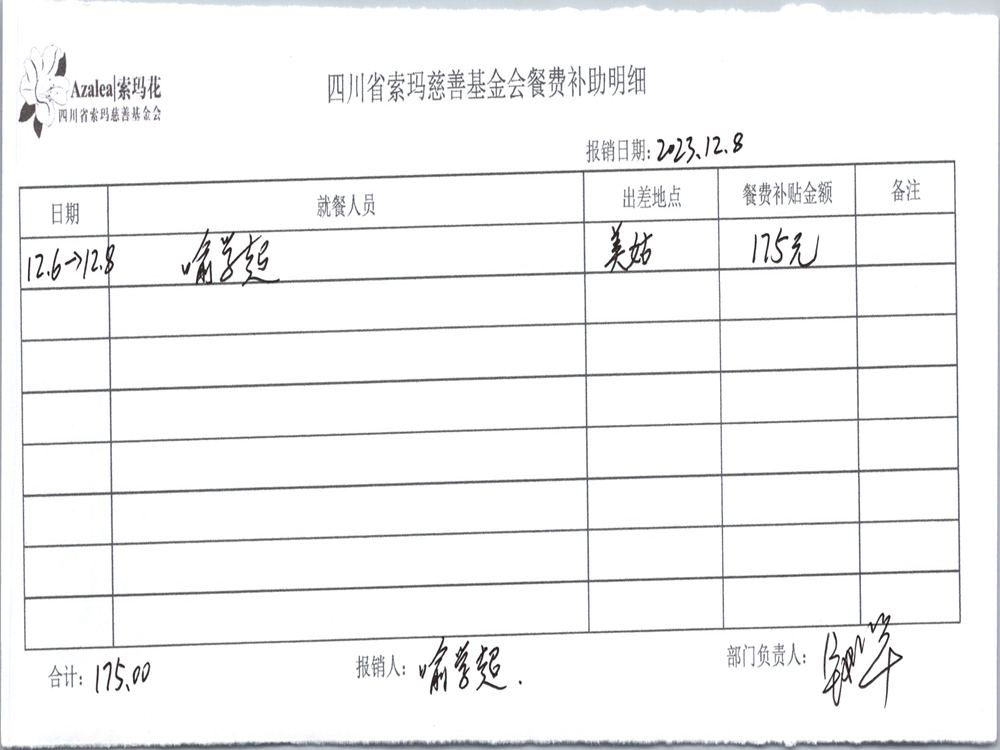 Azalea|索玛花
四川省索玛慈善基金会
四川省索玛慈善基金会餐费补助明细
报销日期: 2023.12.8
日期 就餐人员 出差地点 餐费补贴金额 备注
12.6→12.8 喻学超 美姑 175元
合计: 175.00 报销人: 喻学超. 部门负责人: